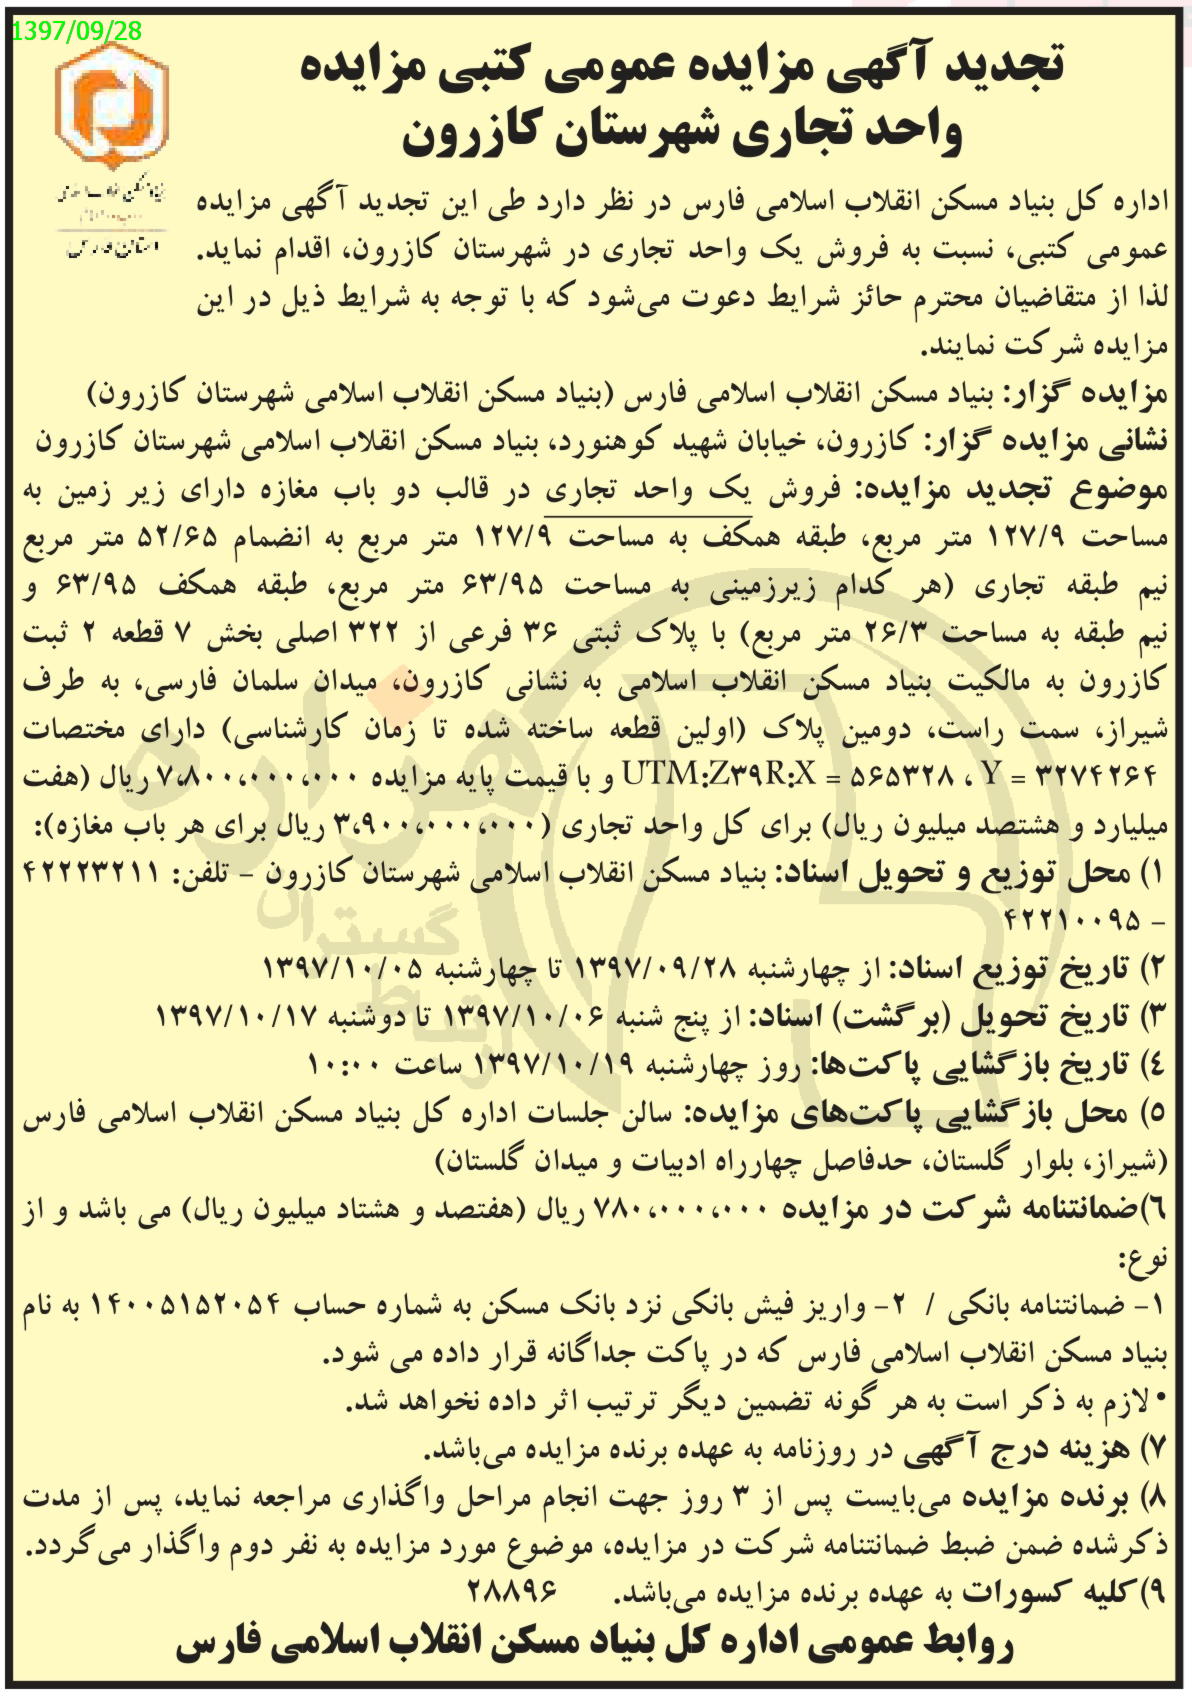 1397/09/28
تجدید آگهی مزایده عمومی کتبی مزایده
واحد تجاری شهرستان کازرون
اداره کل بنیاد مسکن انقلاب اسلامی فارس در نظر دارد طی این تجدید آگهی مزایده
عمومی کتبی، نسبت به فروش یک واحد تجاری در شهرستان کازرون، اقدام نماید.
لذا از متقاضیان محترم حائز شرایط دعوت می‌شود که با توجه به شرایط ذیل در این
مزایده شرکت نمایند.
مزایده گزار: بنیاد مسکن انقلاب اسلامی فارس (بنیاد مسکن انقلاب اسلامی شهرستان کازرون)
نشانی مزایده گزار: کازرون، خیابان شهید کوهنورد، بنیاد مسکن انقلاب اسلامی شهرستان کازرون
موضوع تجدید مزایده: فروش یک واحد تجاری در قالب دو باب مغازه دارای زیر زمین به
مساحت ۱۲۷/۹ متر مربع، طبقه همکف به مساحت ۱۲۷/۹ متر مربع به انضمام ۵۲/۶۵ متر مربع
نیم طبقه تجاری (هر کدام زیرزمینی به مساحت ۶۳/۹۵ متر مربع، طبقه همکف ۶۳/۹۵ و
نیم طبقه به مساحت ۲۶/۳ متر مربع) با پلاک ثبتی ۳۶ فرعی از ۳۲۲ اصلی بخش ۷ قطعه ۲ ثبت
کازرون به مالکیت بنیاد مسکن انقلاب اسلامی به نشانی کازرون، میدان سلمان فارسی، به طرف
شیراز، سمت راست، دومین پلاک (اولین قطعه ساخته شده تا زمان کارشناسی) دارای مختصات
UTM:Z۳۹R:X = ۵۶۵۳۲۸ ، Y = ۳۲۷۴۲۶۴ و با قیمت پایه مزایده ۷،۸۰۰،۰۰۰،۰۰۰ ریال (هفت
میلیارد و هشتصد میلیون ریال) برای کل واحد تجاری (۳،۹۰۰،۰۰۰،۰۰۰ ریال برای هر باب مغازه):
۱) محل توزیع و تحویل اسناد: بنیاد مسکن انقلاب اسلامی شهرستان کازرون - تلفن: ۴۲۲۲۳۲۱۱
- ۴۲۲۱۰۰۹۵
۲) تاریخ توزیع اسناد: از چهارشنبه ۱۳۹۷/۰۹/۲۸ تا چهارشنبه ۱۳۹۷/۱۰/۰۵
۳) تاریخ تحویل (برگشت) اسناد: از پنج شنبه ۱۳۹۷/۱۰/۰۶ تا دوشنبه ۱۳۹۷/۱۰/۱۷
٤) تاریخ بازگشایی پاکت‌ها: روز چهارشنبه ۱۳۹۷/۱۰/۱۹ ساعت ۱۰:۰۰
٥) محل بازگشایی پاکت‌های مزایده: سالن جلسات اداره کل بنیاد مسکن انقلاب اسلامی فارس
(شیراز، بلوار گلستان، حدفاصل چهارراه ادبیات و میدان گلستان)
٦)ضمانتنامه شرکت در مزایده ۷۸۰،۰۰۰،۰۰۰ ریال (هفتصد و هشتاد میلیون ریال) می باشد و از
نوع:
۱- ضمانتنامه بانکی / ۲- واریز فیش بانکی نزد بانک مسکن به شماره حساب ۱۴۰۰۵۱۵۲۰۵۴ به نام
بنیاد مسکن انقلاب اسلامی فارس که در پاکت جداگانه قرار داده می شود.
• لازم به ذکر است به هر گونه تضمین دیگر ترتیب اثر داده نخواهد شد.
۷) هزینه درج آگهی در روزنامه به عهده برنده مزایده می‌باشد.
۸) برنده مزایده می‌بایست پس از ۳ روز جهت انجام مراحل واگذاری مراجعه نماید، پس از مدت
ذکرشده ضمن ضبط ضمانتنامه شرکت در مزایده، موضوع مورد مزایده به نفر دوم واگذار می‌گردد.
۹)کلیه کسورات به عهده برنده مزایده می‌باشد. ۲۸۸۹۶
روابط عمومی اداره کل بنیاد مسکن انقلاب اسلامی فارس